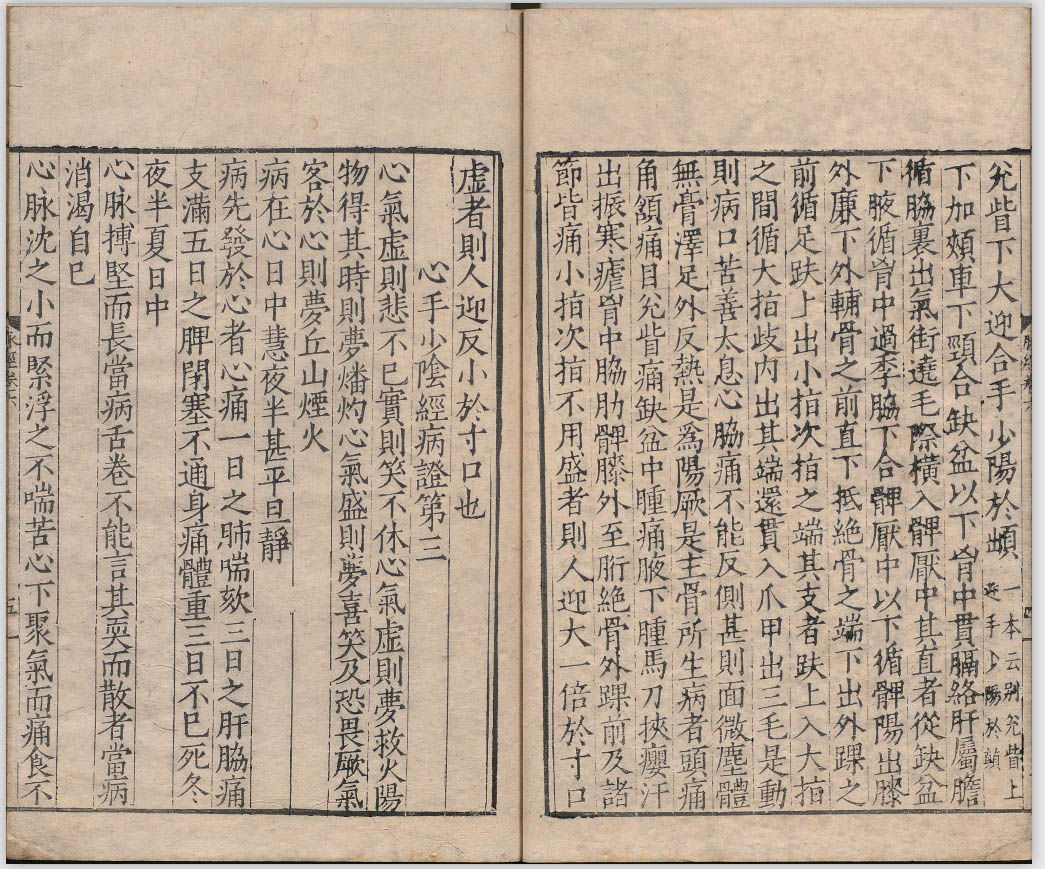 兊眥下大迎合手少陽於䪼一本云别兊眥上
迎手少陽於䪼
下加頰車下頸合缺盆以下胷中貫膈絡肝屬膽
循脇裏出氣街遶毛際橫入髀厭中其直者從缺盆
下腋循胷中過季脇下合髀厭中以下循髀陽出膝
外廉下外輔骨之前直下抵絶骨之端下出外踝之
前循足趺上出小指次指之端其支者趺上入大指
之間循大指歧內出其端還貫入爪甲出三毛是動
則病口苦善太息心脇痛不能反側甚則面微塵體
無膏澤足外反熱是爲陽厥是主骨所生病者頭痛
角頷痛目兊眥痛缺盆中腫痛腋下腫馬刀挾癭汗
出振寒瘧胷中脇肋髀膝外至胻絶骨外踝前及諸
節皆痛小指次指不用盛者則人迎大一倍於寸口
虛者則人迎反小於寸口也
心手少陰經病證第三
心氣虛則悲不已實則笑不休心氣虛則夢救火陽
物得其時則夢燔灼心氣盛則夢喜笑及恐畏厥氣
客於心則夢丘山煙火
病在心日中慧夜半甚平旦靜
病先發於心者心痛一日之肺喘欬三日之肝脇痛
支滿五日之脾閉塞不通身痛體重三日不已死冬
夜半夏日中
心脉搏堅而長當病舌卷不能言其耎而散者當病
消渴自已
心脉沈之小而緊浮之不喘苦心下聚氣而痛食不